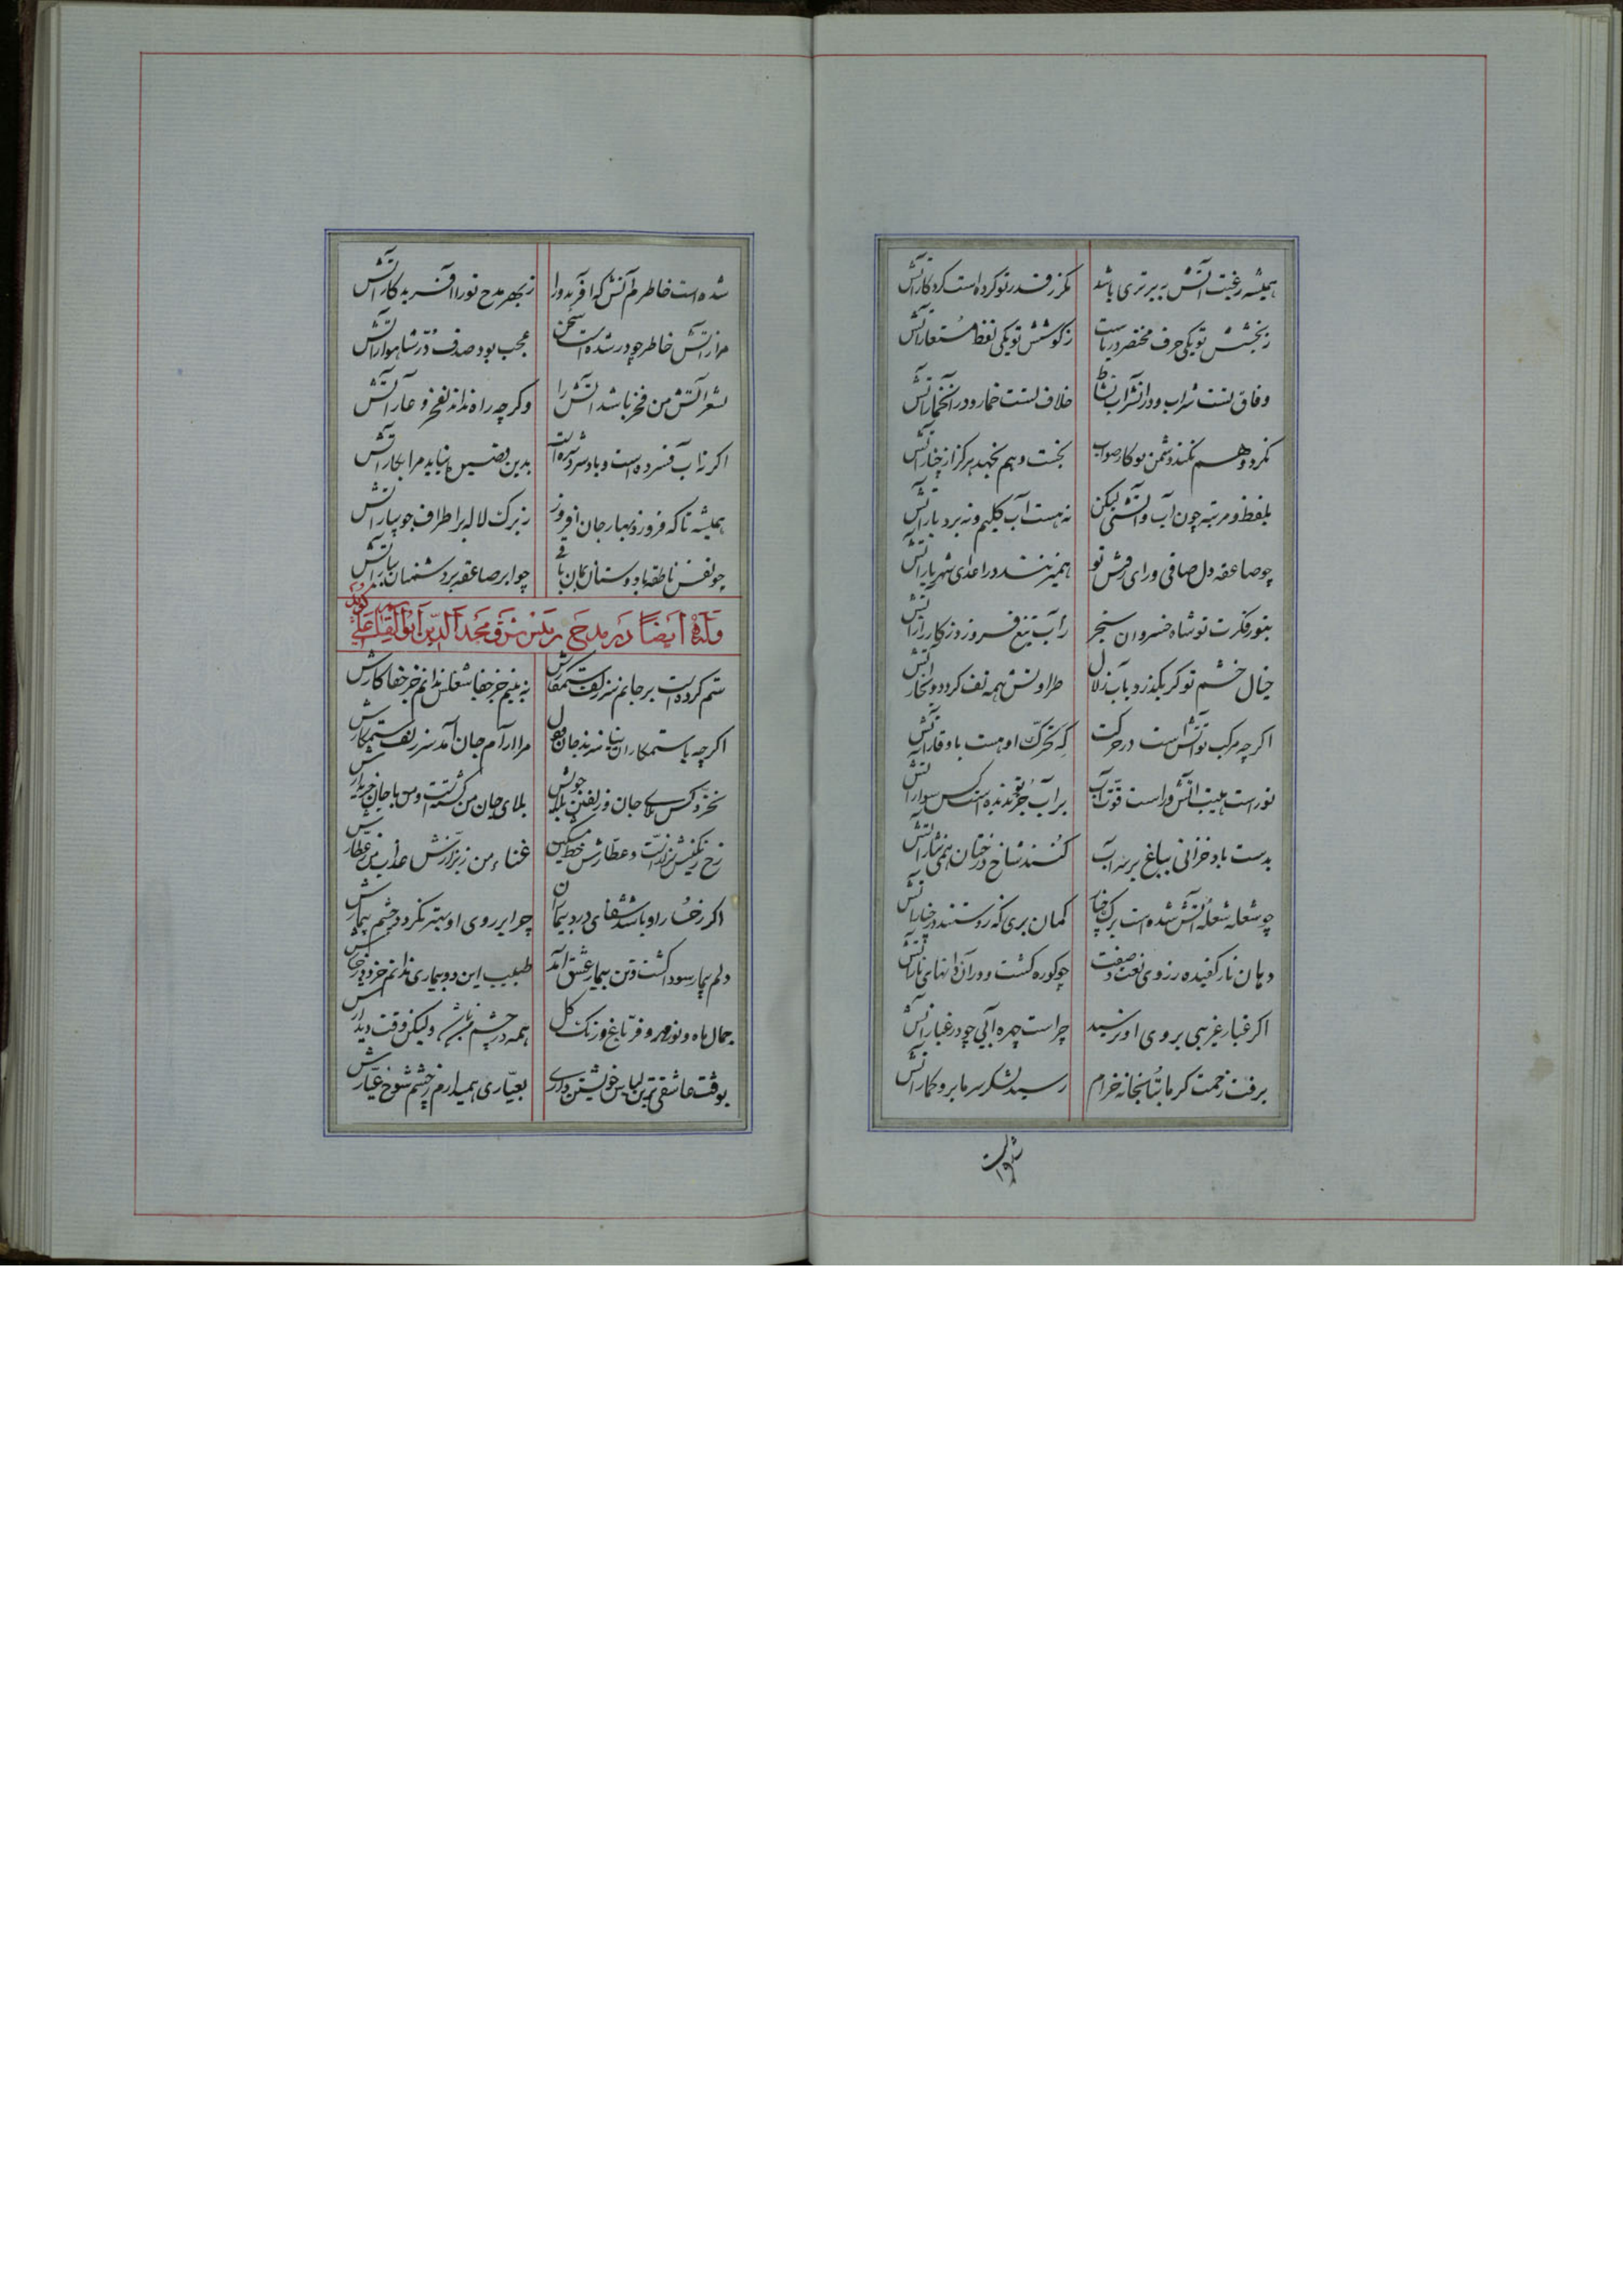 همیشه رغبت آتش به برتری باشد مکر ز قدر تو کرده است کردکار آتش
ز بخشش تو یکی حرف مختصر دریاست ز کوشش تو یکی لفظ مستعار آتش
وفاق تست شراب و در آن شراب نشاط خلاف تست خمار و در آن خمار آتش
نکرد و هم نکند دشمن تو کار صواب نجست و هم نجهد هرکز از چنار آتش
بلفظ و مرتبه چون آب و آتشی لیکن نه هست آب کلیم و نه بردبار آتش
چو صاعقه دل صافی و رای روشن تو همی زند در اعدای شهریار آتش
بنور فکرت تو شاه خسروان سنجر ز آب تیغ فروزد روز کارزار آتش
خیال خشم تو کر بکذرد بآب زلال طراوتش همه تف کردد و بخار آتش
اکر چه مرکب تو آتش است در حرکت که تحرک او هست باوقار آتش
تو راست هیبت آتش وراست قوت آب بر آب جز تو ندیده است کس سوار آتش
بدست باد خزانی بباغ بر سر آب کنند شاخ درختان همی نثار آتش
چو شعله شعله آتش شده است برک چنار کمان بری که زدستند در چنار آتش
دهان نار کفیده ز روی نعت و صفت چو کوره کشت و در آن دانهای نار آتش
اکر غبار غریبی بروی او نرسید چراست چهره آبی چو در غبار آتش
برفت زحمت کرما بتابخانه خرام رسید لشکر سرما برو کمار آتش
شده است
شده است خاطرم آتش که آفریدورا ز بهر مدح تورا آفریدکار آتش
مرا ز آتش خاطر چو در شده است سخن عجب بود صدف در شاهوار آتش
بشعر آتش من فخر باشد آتش را وکر چه راه نداند بفخر و عار آتش
اکر ز آب فسرده است و باد سرد شده است بدین دو نیاید مرا بکار آتش
همیشه تا که فروزد بهار جان افروز ز برک لاله بر اطراف جویبار آتش
چو نفس ناطقه با دوستان بمان باقی چو ابر صاعقه بر دشمنان ببار آتش
وله ایضا در مدح رئیس شرق مجد الدین ابوالقاسم علی کوید
ستم کرده است بر جانم سر زلف ستمکارش نه بینم جز جفا شغلش ندانم جز جفا کارش
اکر چه با ستمکاران نیارامد جان مرا آرام جان آمد سر زلف ستمکارش
نخرد کس بلای جان و زلفین بلا جویش بلای جان من کشته است و من با جان خریدارش
رخ رنکینش بزاز است و عطارش خط مشکین غناء من ز بزازش عذاب من ز عطارش
اکر رخسار او باشد شفای درد بیماران چرا بر روی او بهتر نکردد چشم بیمارش
دلم بیمار سودا کشت و تن بیمار عشق آمد طبیب این دو بیماری ندانم جز دو رخسارش
جمال ماه و نور مهر و فر باغ و رنک کل همه در چشم من باشد ولیکن وقت دیدارش
بوقت عاشقی ترین لباس خویشتن داری بعیاری همی دارم ز چشم شوخ عیارش